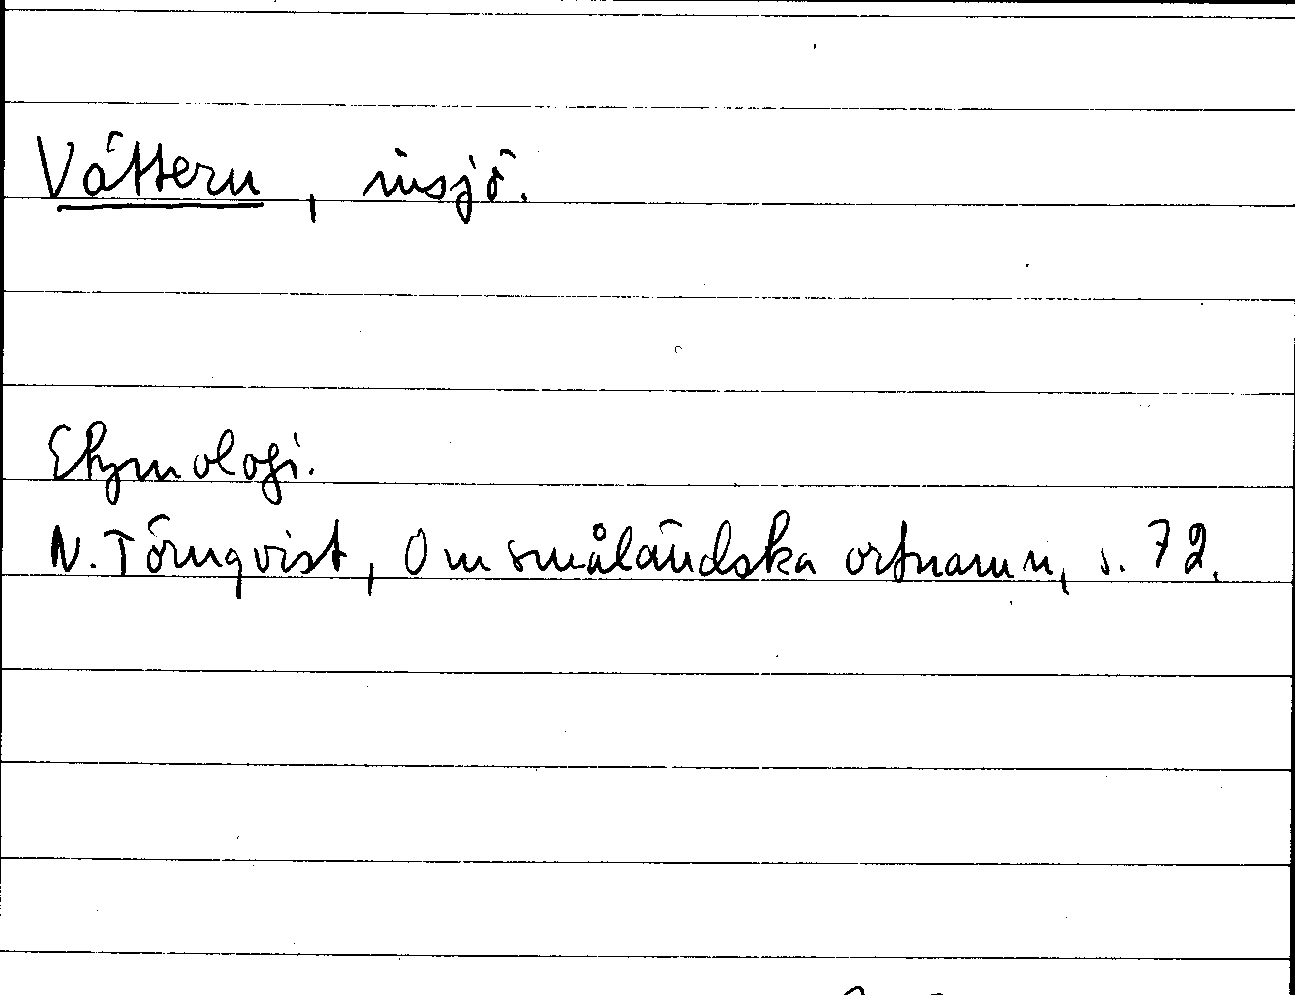 Vättern, insjö.
Etymologi.
N. Törnqvist, Om småländska ortnamn, s. 72.